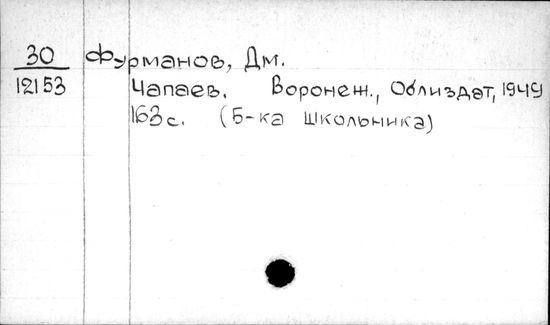 30 Фурманов, Дм.
12153 Чапаев. Воронеж., Облиздат, 1949
163с. (Б-ка школьника)